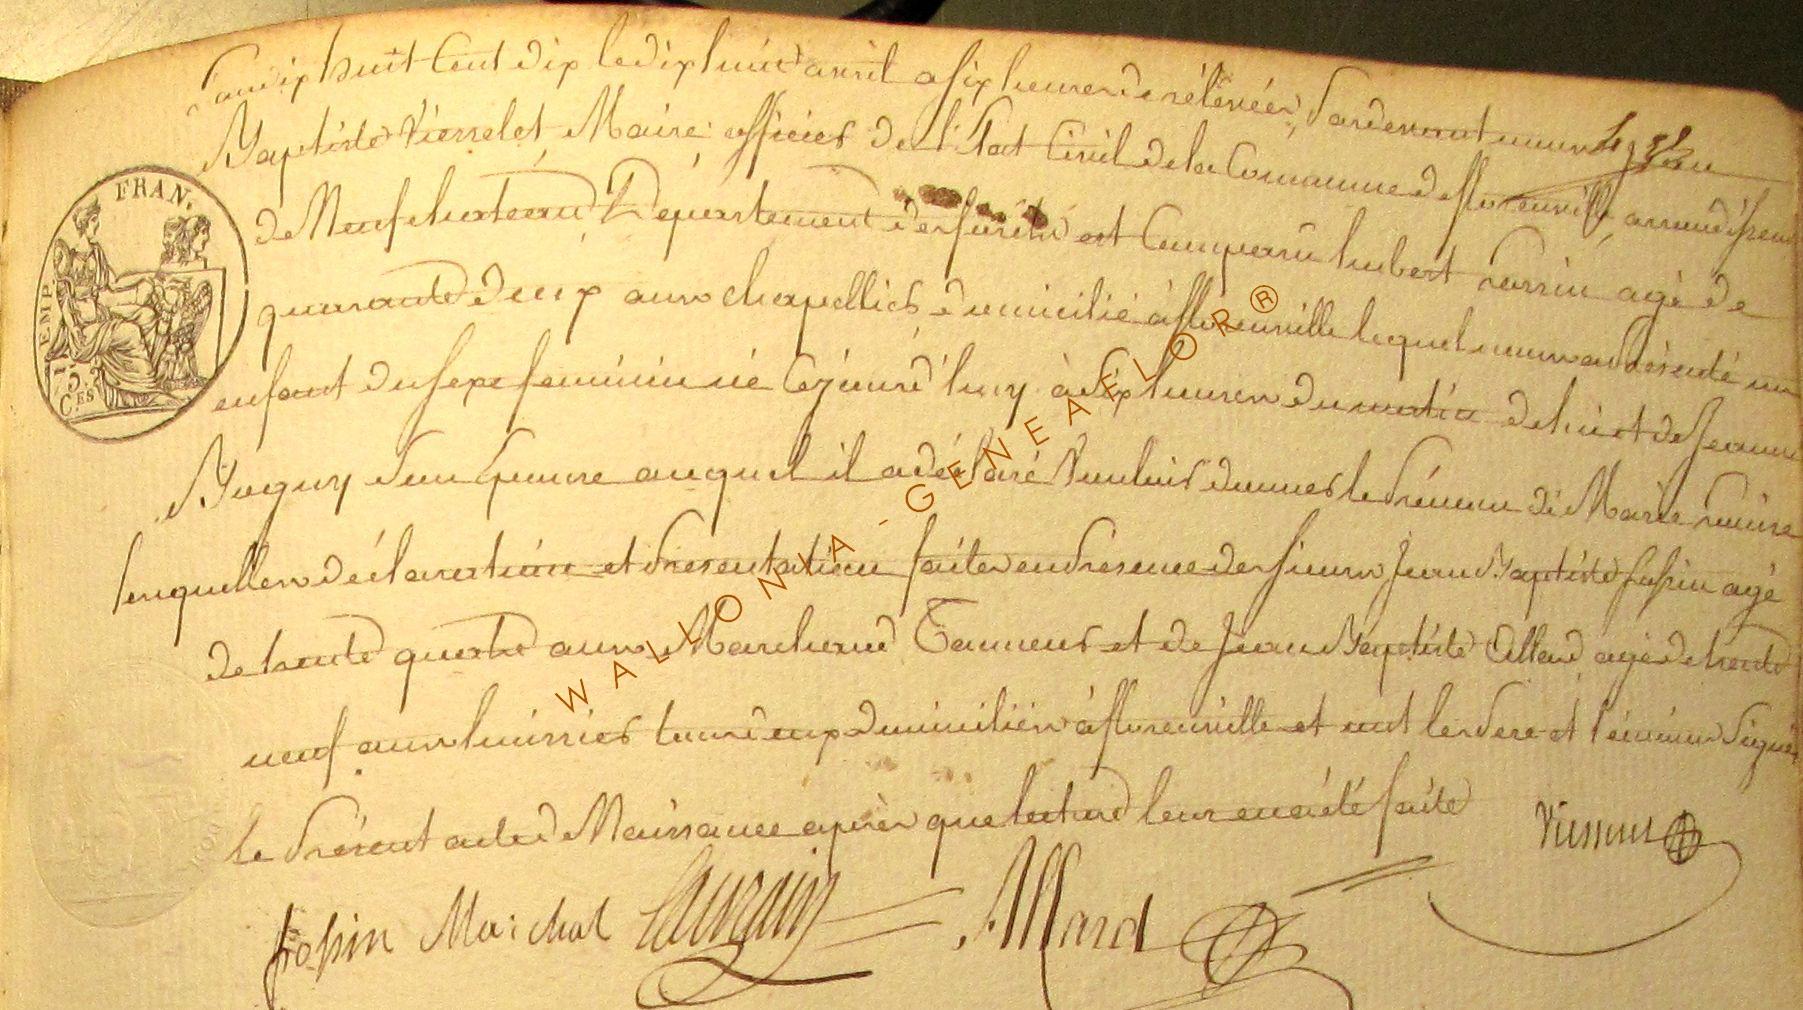 L'an dix huit cent dix le dix huit avril a six heures de rélevéé, Pardevant nous Jean
Baptiste Viesselet Maire officier de l'Etat Civil de la Commune de florenville, arrondissem
de Neufchateau Département des forêts est Comparu hubert agé de
quarante deux ans chapellier domicilié à florenville lequel nous a présenté un
enfant du sexe feminin né Cejourd'huy à six heures du matin de lui et de Jeanne
Buguy son épouse auquel il a déclaré Vouloir donner le Prénom de Marie Louise
lesquelles déclaration et Présentation faites en présence des sieurs Jean Baptiste agé
de trente quatre ans Marchand Tanneur et de Jean Baptiste Allard agé de trente
neuf ans huissier tous deux domiciliés à florenville et ont les Pere et témoins signés
le Présent acte de Naissance aprés que lecture leur en a été faite
Maichal Allard
FRAN.
EMP.
75.
C.ES
WALLONIA - GENEAFLOR®